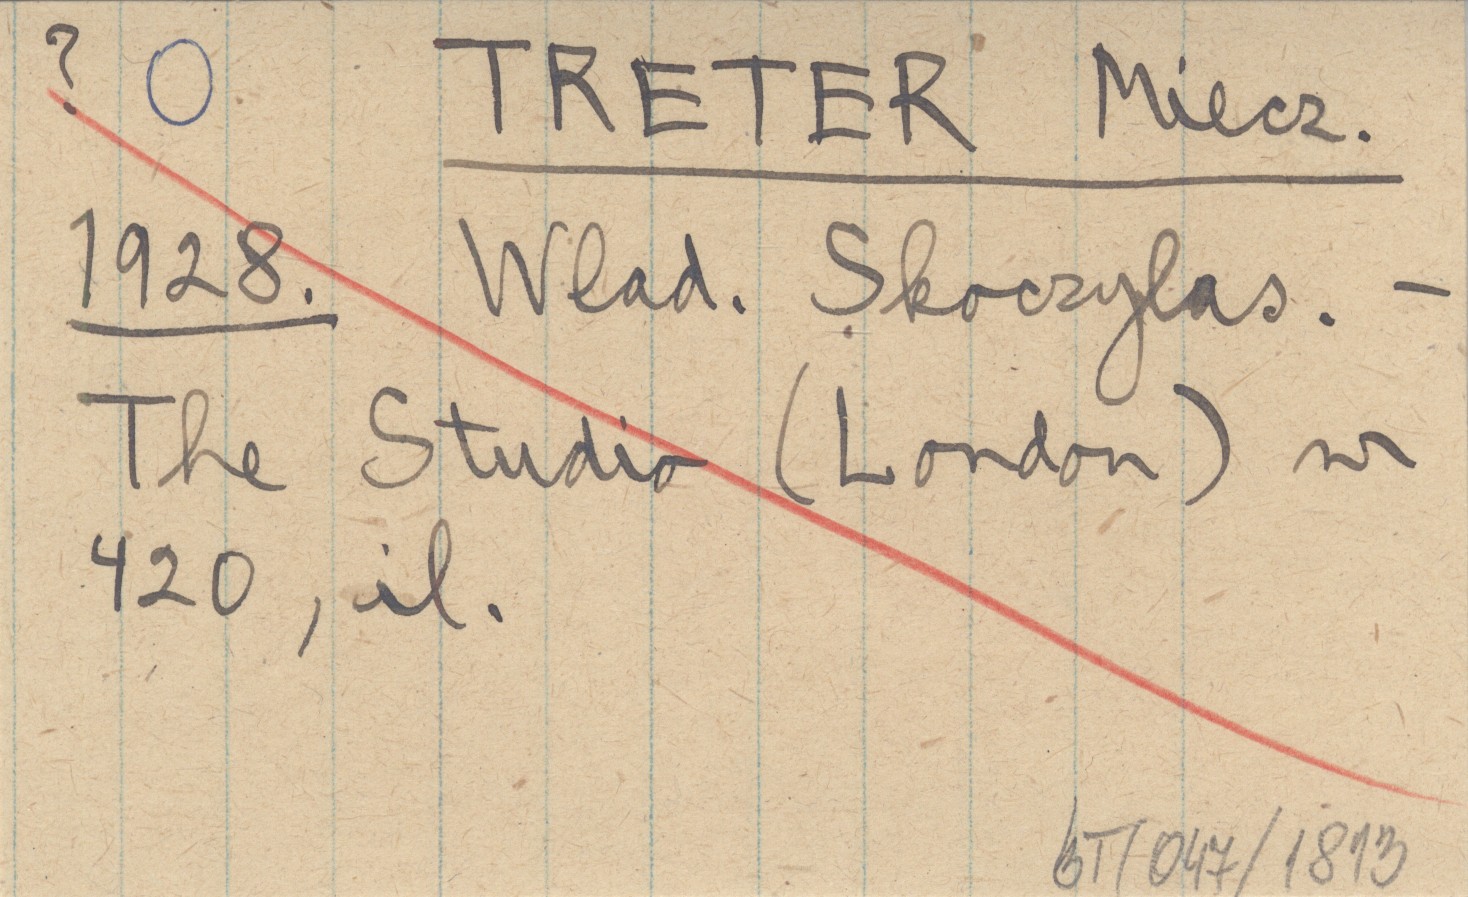 ? O TRETER Miecz.
1928. Wład. Skoczylas. -
The Studio (London) nr
420, il.
bT/047/1813